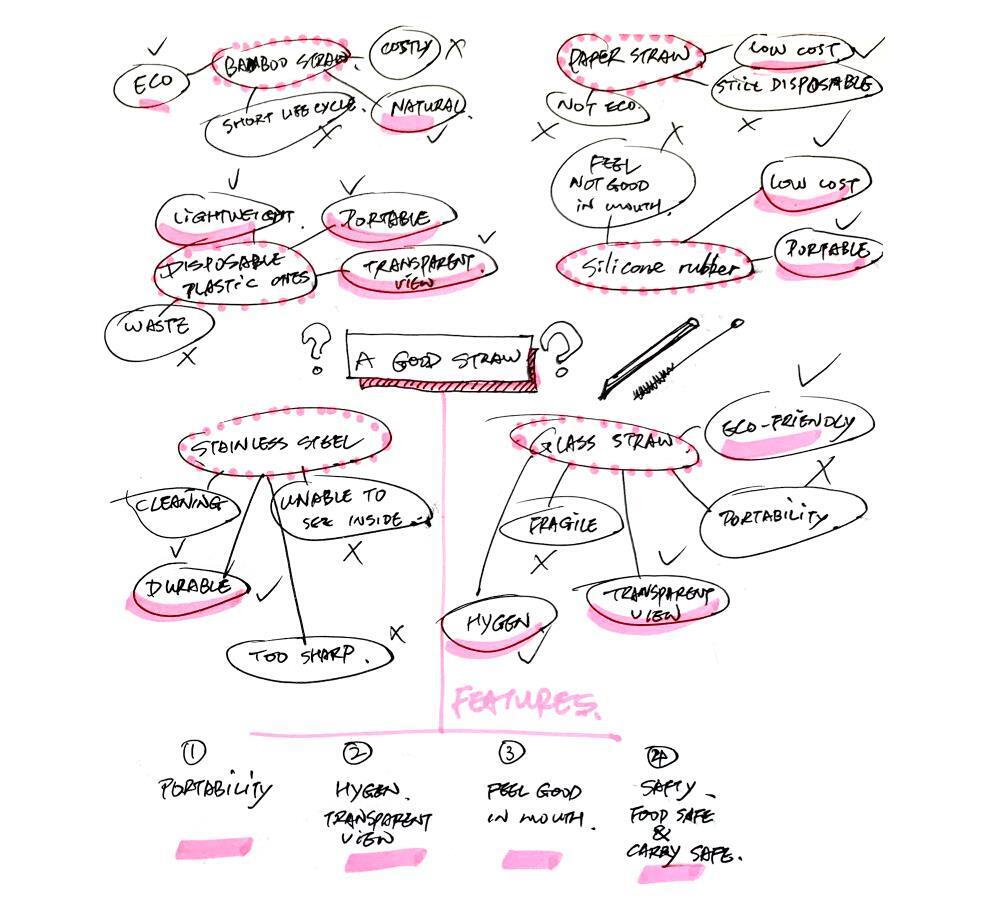 BAMBOO STRAW
COSTLY
ECO
SHORT LIFE CYCLE.
NATURAL
PAPER STRAW
LOW COST
STILL DISPOSABLE
NOT ECO
FEEL
NOT GOOD
IN MOUTH.
LOW COST
Silicone rubber
PORTABLE
LIGHTWEIGHT.
PORTABLE
DISPOSABLE
PLASTIC ONES
TRANSPARENT
VIEW
WASTE
? A GOOD STRAW ?
STAINLESS STEEL
CLEANING
UNABLE TO
SEE INSIDE
DURABLE
TOO SHARP.
GLASS STRAW
ECO-FRIENDLY
FRAGILE
PORTABILITY
HYGEN
TRANSPARENT
VIEW
FEATURES.
①
PORTABILITY
②
HYGEN.
TRANSPARENT
VIEW
③
FEEL GOOD
IN MOUTH.
④
SAFTY -
FOOD SAFE
&
CARRY SAFE.